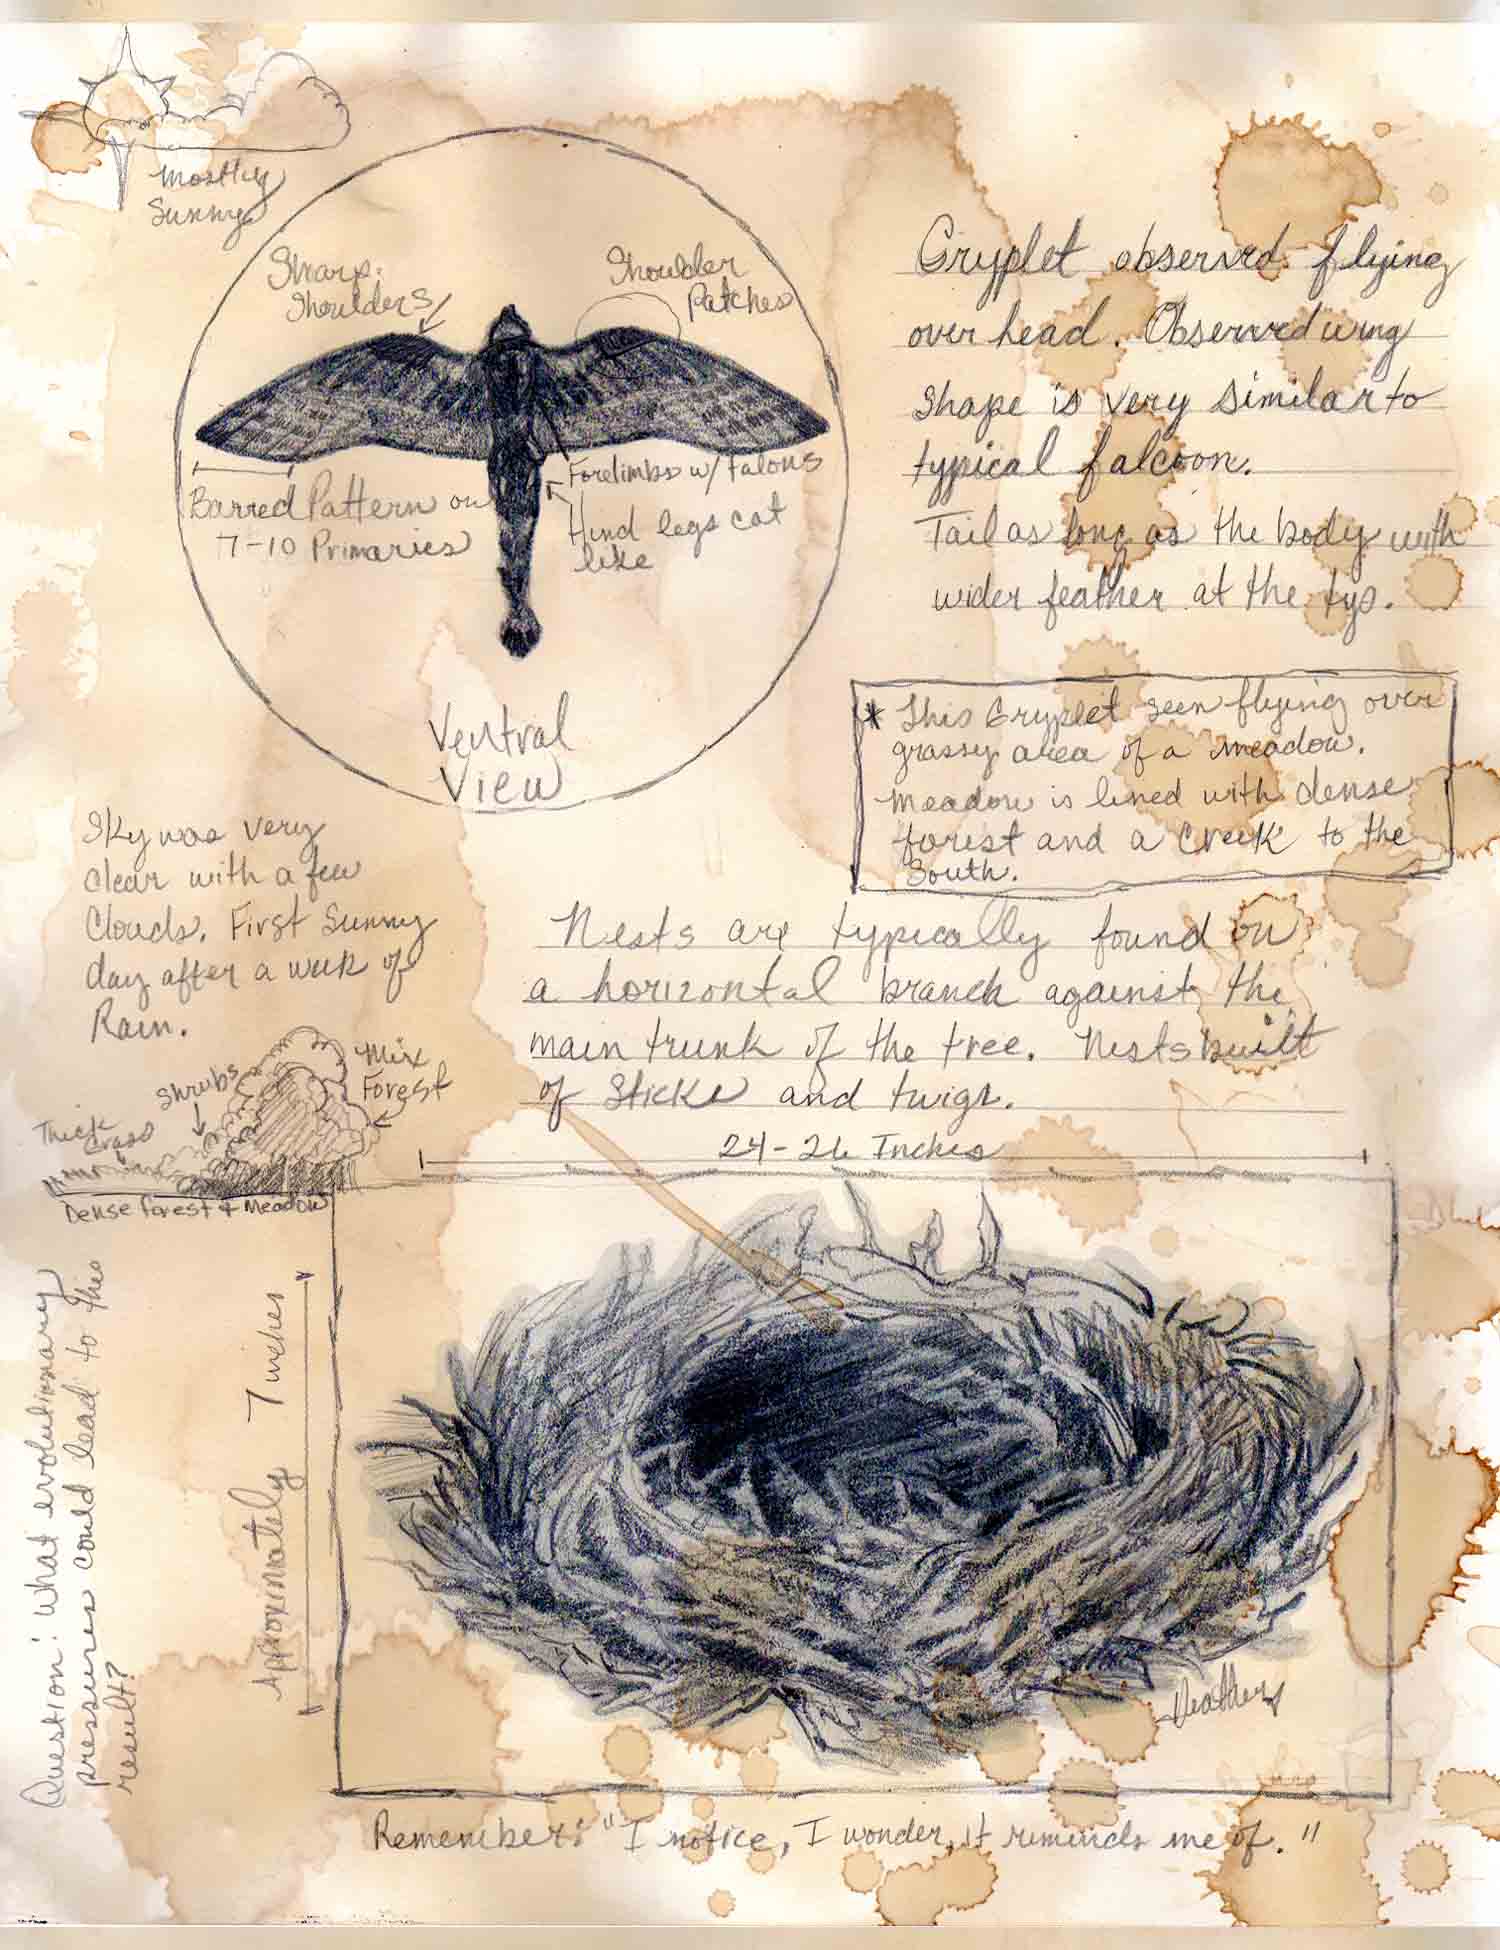 Mostly
Sunny
Sharp
Shoulders
Shoulder
Patches
Forelimbs w/ talons
Hind legs cat
like
Barred Pattern on
7-10 Primaries
Ventral
View
Gryplet observed flying
over head. Observed wing
shape is very similar to
typical falcoon.
Tail as long as the body with
wider feather at the
* This Gryplet seen flying over
grassy area of a meadow.
Meadow is lined with dense
forest and a creek to the
South.
Sky was very
clear with a few
Clouds. First Sunny
day after a week of
Rain.
Nests are typically found on
a horizontal branch against the
main trunk of the tree. Nests built
of sticks and twigs.
Shrubs
Mix
Forest
Thick
Grass
Dense forest & Meadow
24-26 Inches
Approximately 7 inches
Question: What evolutionary
pressures could lead to this
result?
Heather
Remember: "I notice, I wonder, it reminds me of."